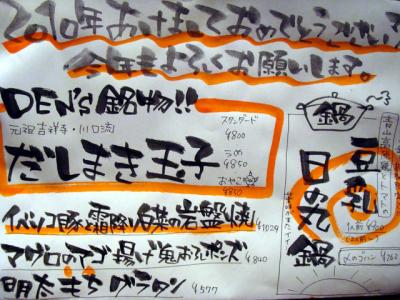 2010年あけましておめでとうございます
今年もよろしくお願いします。
DEN's 銘物!!
元祖吉祥寺・川口流
だしまき玉子
スタンダード
¥800
うめ
¥850
おやこ
¥850
イベリコ豚と霜降り白菜の岩盤焼 ¥1029
マグロのアゴ揚げ鬼おろしポンズ ¥840
明太もちグラタン ¥577
鍋
豆乳
日の丸鍋
1人前 ¥900
〆のゴハン ¥263